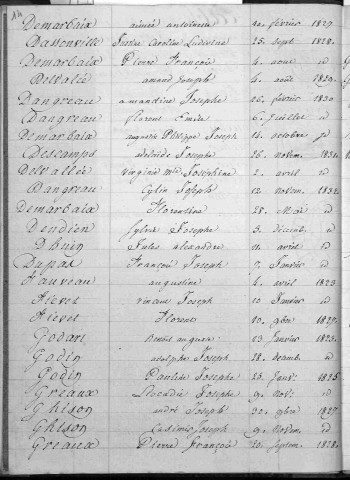 Demarbaix aimée antoinette 20. février 1829
Dassonville Justine Caroline Ludovine 25. Sept. 1828.
Demarbaix Pierre François 4. aout d
Delvalée amand Joseph 4. août 1829.
Dangreau amandine Josephe 26. février 1830
Dangreau florent Emile 6. Juillet d
Demarbaix augustin Philippe Joseph 14. octobre d
Descamps adelaïde Josephe 26. novem. 1831
Delvallée virginie Mie Joséphine 2. avril d
Dangreau Cylin Joseph 12. novem. 1832
Demarbaix Florentine 28. Mai d
Dendien Sylvie Josephe 3. décemb. d
Dhuin Jules alexandre 9. avril d
Dupas François Joseph 7. Janvier d
Fauveau augustine 4. avril 1823
Fievet vincent Joseph 10. Janvier d
Fievet Florent 20. 9bre 1827.
Godart Benoit auguste 23. Janvier 1825.
Godin adolphe Joseph 28. décemb. d
Godin Bastide Josephe 23. Janv. 1825
Greaux Léocadie Josephe 9. nov. d
Ghison andré Joseph 20. 9bre 1827
Ghison Casimir Joseph 9. Novem. d
Greaux Pierre François 20. Septem. 1828.